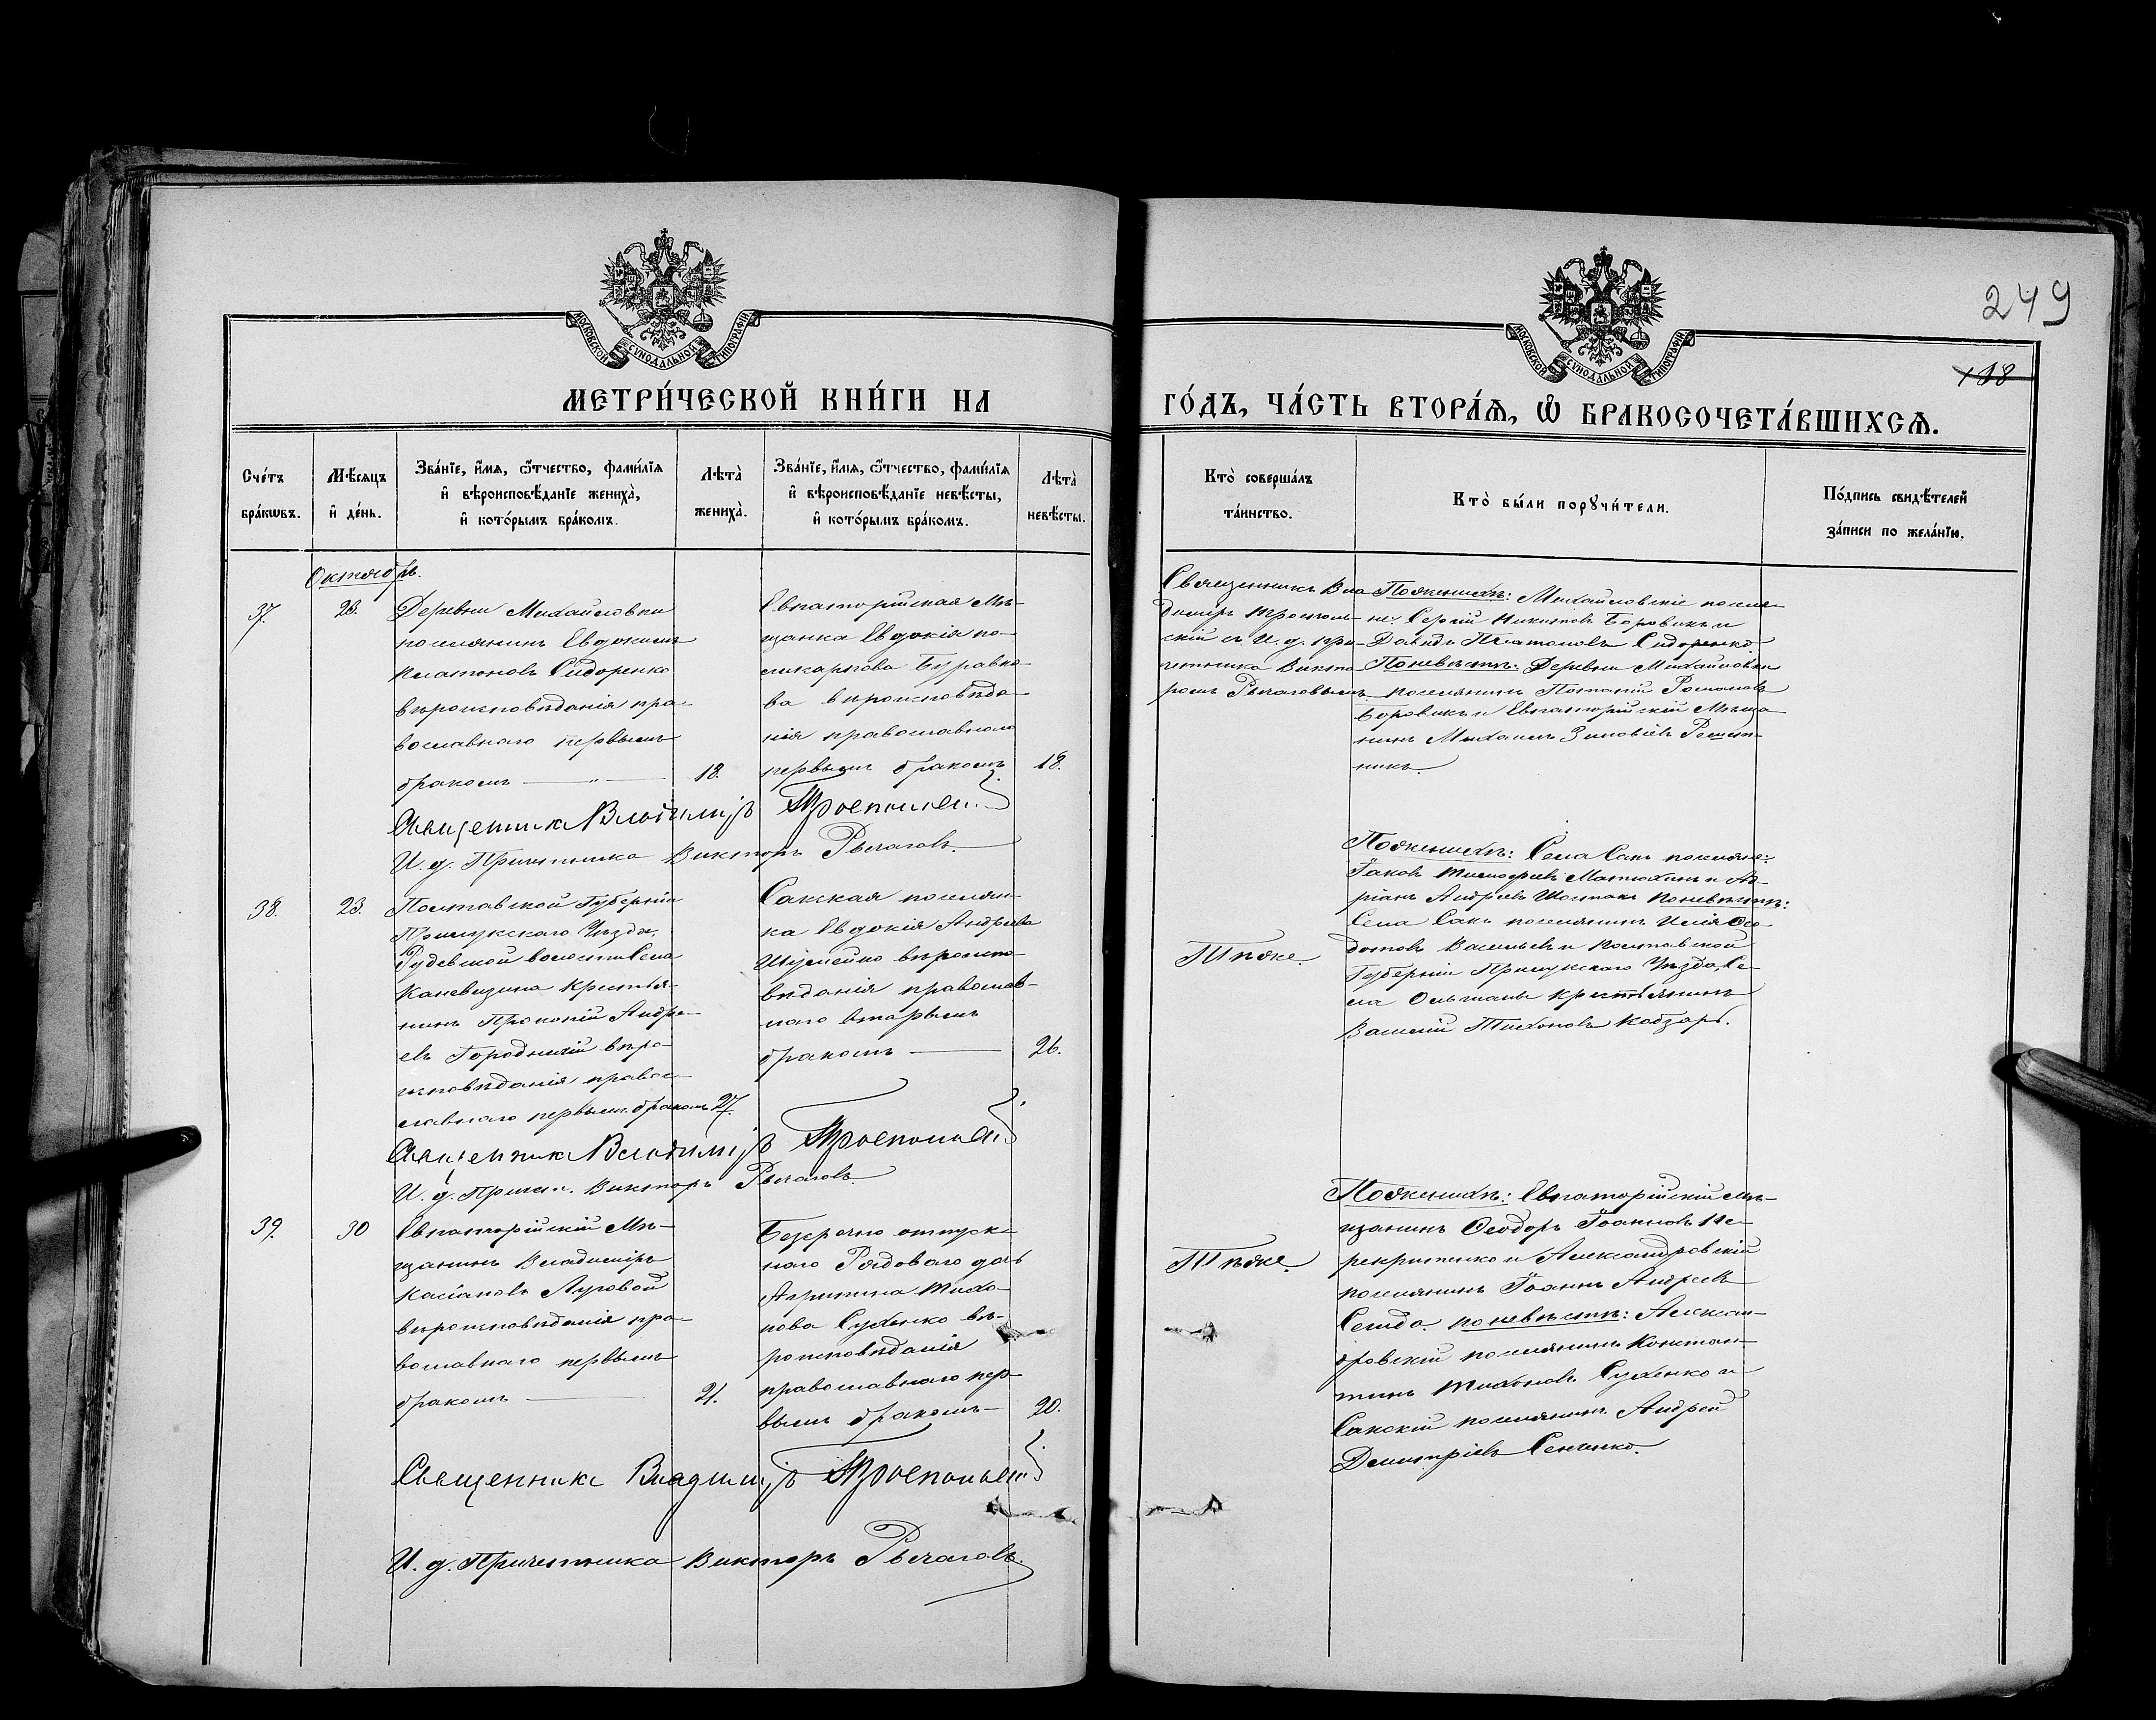 249
118
МОСКОВСКОЙ СѴНОДАЛЬНОЙ ТИПОГРАФІИ
МОСКОВСКОЙ СѴНОДАЛЬНОЙ ТИПОГРАФІИ
МЕТРИ́ЧЕСКОЙ КНИ́ГИ НА
ГО́ДЪ, ЧА́СТЬ ВТОРА́Ѧ, Ѡ҆ БРАКОСОЧЕТА́ВШИХСѦ.
Сче́тъ
бра́кѡвъ.
Мѣ́сѧцъ
и҆ де́нь.
Зва́нїе, и҆́мѧ, ѻ҆́тчество, фами́лїѧ
и҆ вѣроисповѣ́данїе жениха̀,
и҆ кото́рымъ бра́комъ.
Лѣта̀
жениха̀.
Зва́нїе, и҆́мѧ, ѻ҆́тчество, фами́лїѧ
и҆ вѣроисповѣ́данїе невѣ́сты,
и҆ кото́рымъ бра́комъ.
Лѣта̀
невѣ́сты.
Кто̀ соверша́лъ
та́инство.
Кто̀ бы́ли порꙋчи́тели.
По́дпись свидѣ́телей
за́писи по жела́нїю.
Октябрь.
37.
23.
Деревни Михайловки
поселянинъ Евдокимъ
Платоновъ Сидоренко
вѣроисповѣданія пра-
вославнаго первымъ
бракомъ — " —
18.
Евпаторійская Мѣ-
щанка Евдокія По-
ликарпова Буравко-
ва вѣроисповѣда-
нія православнаго
первымъ бракомъ
18.
Священникъ Вла-
димиръ Троеполь-
скій съ И. д. при-
четника Викто-
ромъ Рычаговымъ
По женихѣ: Михайловскіе поселя-
не: Сергій Никитовъ Боровикъ и
Давидъ Платоновъ Сидоренко
По невѣстѣ: Деревни Михайловки
поселянинъ Потапій Романовъ
Боровикъ и Евпаторійскій Мѣща-
нинъ Михаилъ Зиновіевъ Решет-
никъ.
Священникъ Владиміръ Троепольскій
И. д. Причетника Викторъ Рычаговъ.
38.
23.
Полтавской Губерніи
Прилукскаго Уѣзда,
Рудевской волости Села
крестья-
нинъ Прокопій Андре-
евъ Городничій вѣро-
исповѣданія право-
славнаго первымъ бракомъ
27.
Сакская поселян-
ка Евдокія Андреева
Шумейко вѣроиспо-
вѣданія православ-
наго вторымъ
бракомъ —
26.
Тѣже.
По женихѣ: Села Сакъ поселяне:
Іаковъ Тимофеевъ Матюхинъ и Ад-
ріанъ Андреевъ Шостакъ По невѣстѣ:
Села Сакъ поселянинъ Илія Ѳео-
дотовъ Васильевъ и Полтавской
Губерніи Прилукскаго Уѣзда, Се-
ла Ольшаны крестьянинъ
Василій Тихоновъ Кобзарь.
Священникъ Владиміръ Троепольскій
И. д. Причет. Викторъ Рычаговъ
39.
30
Евпаторійскій Мѣ-
щанинъ Владиміръ
Касіановъ Луговой
вѣроисповѣданія пра-
вославнаго первымъ
бракомъ —
21.
Безсрочно отпуск-
наго Рядоваго дочь
Агрипина Тихо-
нова Сухенко вѣ-
роисповѣданія
православнаго пер-
вымъ бракомъ —
20.
Тѣже.
По женихѣ: Евпаторійскій мѣ-
щанинъ Ѳеодоръ Іоанновъ Не-
рекритенко и Александровскій
поселянинъ Іоаннъ Андреевъ
По невѣстѣ: Алексан-
дровскій поселянинъ Констан-
тинъ Тихоновъ Сухенко и
Сакскій поселянинъ Андрей
Димитріевъ Сененко.
Священникъ Владиміръ Троепольскій
И. д. Причетника Викторъ Рычаговъ.